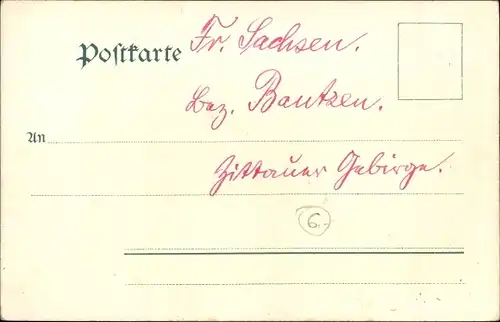 Postkarte Fr. Sachsen.
Bez. Bautzen.
An
Zittauer Gebirge.
6.-